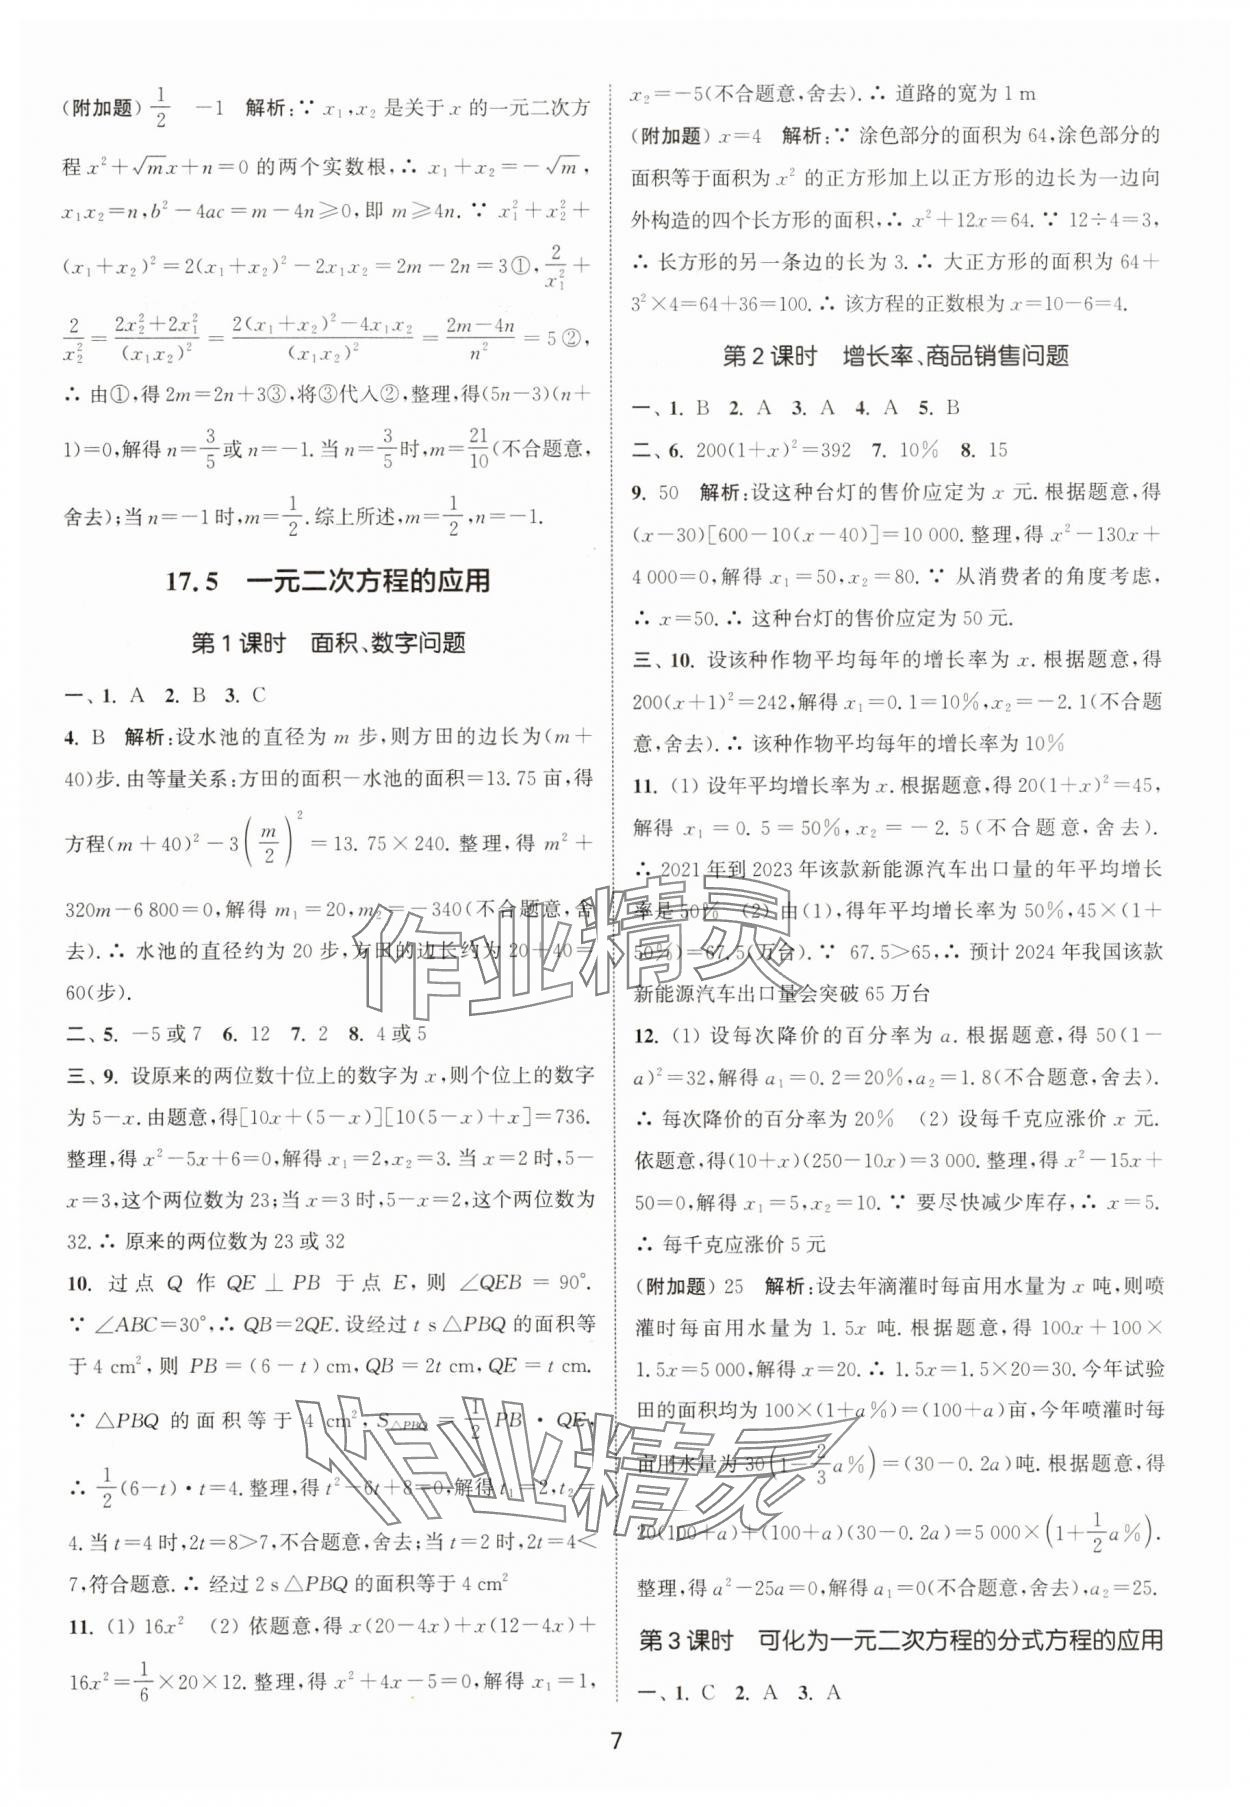 (附加题) 1/2 -1 解析:∵ x₁,x₂ 是关于 x 的一元二次方
程 x²+√m x+n=0 的两个实数根,∴ x₁+x₂=-√m,
x₁x₂=n,b²-4ac=m-4n≥0,即 m≥4n.∵ x₁²+x₂²+
(x₁+x₂)²=2(x₁+x₂)²-2x₁x₂=2m-2n=3①,2/x₁²+
2/x₂²=(2x₂²+2x₁²)/(x₁x₂)²=(2(x₁+x₂)²-4x₁x₂)/(x₁x₂)²=(2m-4n)/n²=5②,
∴ 由①,得 2m=2n+3③,将③代入②,整理,得(5n-3)(n+
1)=0,解得 n=3/5或 n=-1.当 n=3/5时,m=21/10(不合题意,
舍去);当 n=-1 时,m=1/2.综上所述,m=1/2,n=-1.
17.5 一元二次方程的应用
第 1 课时 面积、数字问题
一、1. A 2. B 3. C
4. B 解析:设水池的直径为 m 步,则方田的边长为(m+
40)步.由等量关系:方田的面积-水池的面积=13.75 亩,得
方程(m+40)²-3(m/2)²=13.75×240.整理,得 m²+
320m-6 800=0,解得 m₁=20,m₂=-340(不合题意,舍
去).∴ 水池的直径约为 20 步,方田的边长约为 20+40=
60(步).
二、5. -5 或 7 6. 12 7. 2 8. 4 或 5
三、9. 设原来的两位数十位上的数字为 x,则个位上的数字
为 5-x.由题意,得[10x+(5-x)][10(5-x)+x]=736.
整理,得 x²-5x+6=0,解得 x₁=2,x₂=3.当 x=2 时,5-
x=3,这个两位数为 23;当 x=3 时,5-x=2,这个两位数为
32.∴ 原来的两位数为 23 或 32
10. 过点 Q 作 QE⊥PB 于点 E,则 ∠QEB=90°.
∵ ∠ABC=30°,∴ QB=2QE.设经过 t s △PBQ 的面积等
于 4 cm²,则 PB=(6-t) cm,QB=2t cm,QE=t cm.
∵ △PBQ 的面积等于 4 cm²,S△PBQ=1/2 PB·QE,
∴ 1/2(6-t)·t=4.整理,得 t²-6t+8=0,解得 t₁=2,t₂=
4.当 t=4 时,2t=8>7,不合题意,舍去;当 t=2 时,2t=4<
7,符合题意.∴ 经过 2 s △PBQ 的面积等于 4 cm²
11. (1) 16x² (2) 依题意,得 x(20-4x)+x(12-4x)+
16x²=1/6×20×12.整理,得 x²+4x-5=0,解得 x₁=1,
x₂=-5(不合题意,舍去).∴ 道路的宽为 1 m
(附加题) x=4 解析:∵ 涂色部分的面积为 64,涂色部分的
面积等于面积为 x² 的正方形加上以正方形的边长为一边向
外构造的四个长方形的面积,∴ x²+12x=64.∵ 12÷4=3,
∴ 长方形的另一条边的长为 3.∴ 大正方形的面积为 64+
3²×4=64+36=100.∴ 该方程的正数根为 x=10-6=4.
第 2 课时 增长率、商品销售问题
一、1. B 2. A 3. A 4. A 5. B
二、6. 200(1+x)²=392 7. 10% 8. 15
9. 50 解析:设这种台灯的售价应定为 x 元.根据题意,得
(x-30)[600-10(x-40)]=10 000.整理,得 x²-130x+
4 000=0,解得 x₁=50,x₂=80.∵ 从消费者的角度考虑,
∴ x=50.∴ 这种台灯的售价应定为 50 元.
三、10. 设该种作物平均每年的增长率为 x.根据题意,得
200(x+1)²=242,解得 x₁=0.1=10%,x₂=-2.1(不合题
意,舍去).∴ 该种作物平均每年的增长率为 10%
11. (1) 设年平均增长率为 x.根据题意,得 20(1+x)²=45,
解得 x₁=0.5=50%,x₂=-2.5(不合题意,舍去).
∴ 2021 年到 2023 年该款新能源汽车出口量的年平均增长
率是 50% (2) 由(1),得年平均增长率为 50%,45×(1+
50%)=67.5(万台).∵ 67.5>65,∴ 预计 2024 年我国该款
新能源汽车出口量会突破 65 万台
12. (1) 设每次降价的百分率为 a.根据题意,得 50(1-
a)²=32,解得 a₁=0.2=20%,a₂=1.8(不合题意,舍去).
∴ 每次降价的百分率为 20% (2) 设每千克应涨价 x 元.
依题意,得(10+x)(250-10x)=3 000.整理,得 x²-15x+
50=0,解得 x₁=5,x₂=10.∵ 要尽快减少库存,∴ x=5.
∴ 每千克应涨价 5 元
(附加题) 25 解析:设去年滴灌时每亩用水量为 x 吨,则喷
灌时每亩用水量为 1.5x 吨.根据题意,得 100x+100×
1.5x=5 000,解得 x=20.∴ 1.5x=1.5×20=30.今年试验
田的面积均为 100×(1+a%)=(100+a)亩,今年喷灌时每
亩用水量为 30(1-2/3a%)=(30-0.2a)吨.根据题意,得
20(100+a)+(100+a)(30-0.2a)=5 000×(1+1/2a%).
整理,得 a²-25a=0,解得 a₁=0(不合题意,舍去),a₂=25.
第 3 课时 可化为一元二次方程的分式方程的应用
一、1. C 2. A 3. A
7
作业精灵
作业精灵